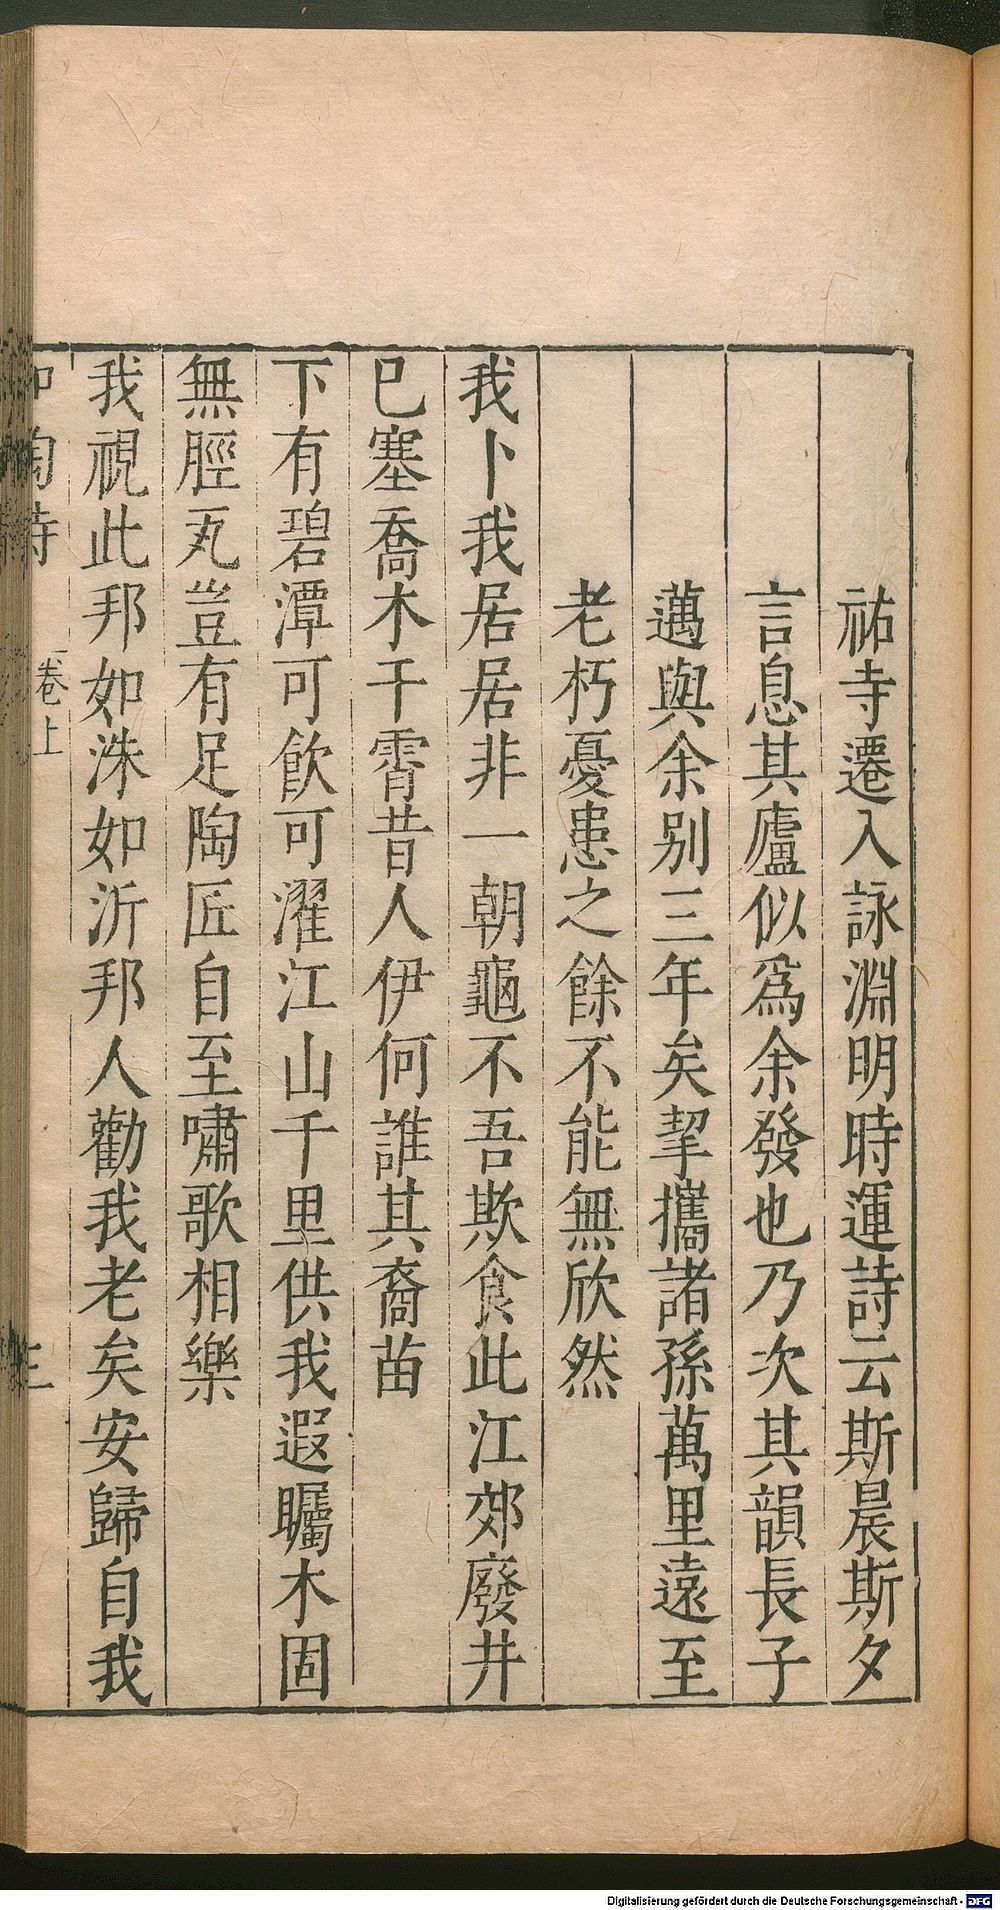 祐寺遷入詠淵明時運詩云斯晨斯夕
言息其廬似爲余發也乃次其韻長子
邁與余别三年矣挈攜諸孫萬里遠至
老朽憂患之餘不能無欣然
我卜我居居非一朝龜不吾欺食此江郊廢井
已塞喬木干霄昔人伊何誰其裔苗
下有碧潭可飲可濯江山千里供我遐矚木固
無脛瓦豈有足陶匠自至嘯歌相樂
我視此邦如洙如沂邦人勸我老矣安歸自我
和陶詩
卷上
三
Digitalisierung gefördert durch die Deutsche Forschungsgemeinschaft - DFG